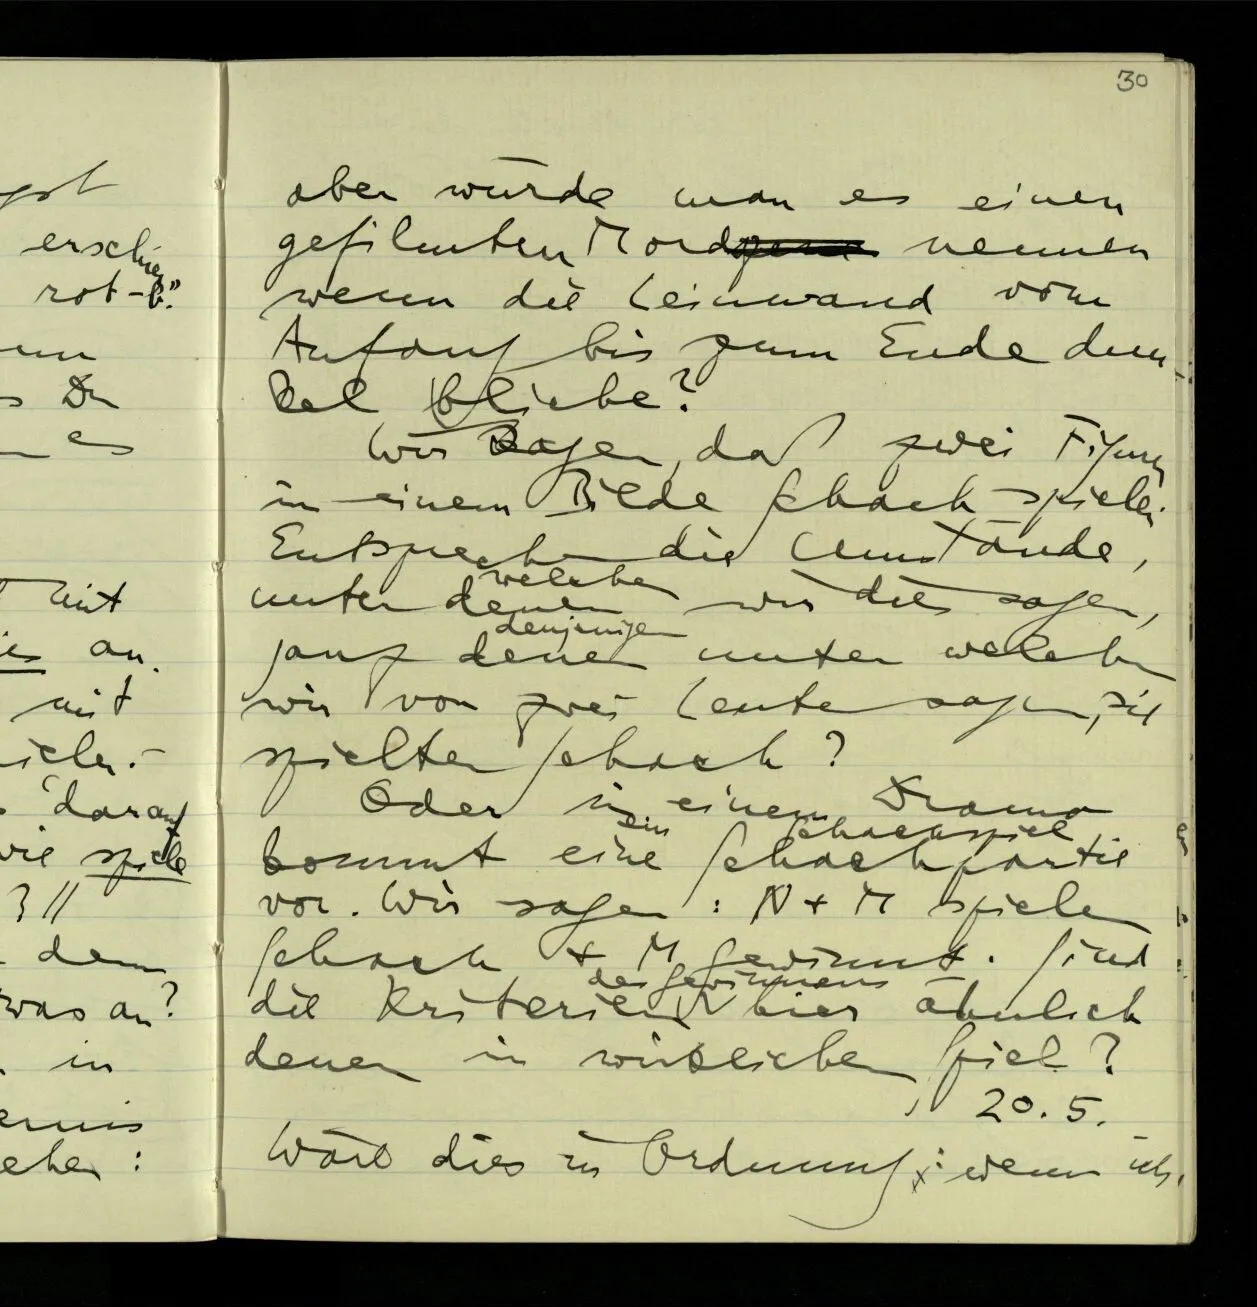 30
gst
erschien
rot-b."
Du
es
mit
an.
mit
darauf
wie spiele
? //
dem
was an?
in
ehen :
aber würde man es einen
gefilmten Mord nennen
wenn die Leinwand vom
Anfang bis zum Ende dun-
kel bliebe?
Wir sagen, daß zwei Figuren
in einem Bilde Schach spielen.
Entsprechen die Umstände,
welchen
unter denen wir dies sagen,
denjenigen
ganz denen unter welchen
wir von zwei Leuten sagen, sie
spielten Schach?
Oder in einem Drama
ein Schachspiel
kommt eine Schachpartie
vor. Wir sagen: N + M spielen
Schach + M gewinnt. Sind
des Gewinnens
die Kriterien hier ähnlich
denen im wirklichen Spiel?
20. 5.
Wäre dies in Ordnung: wenn ich,